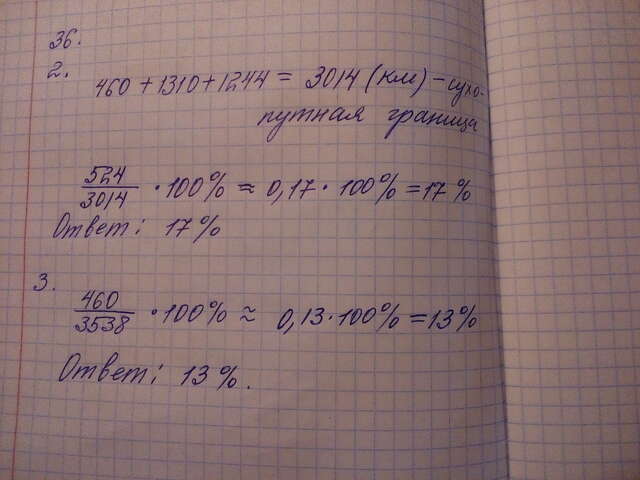 36.
2.
460 + 1310 + 1244 = 3014 (км) - сухо-
путная граница
524/3014 · 100% ≈ 0,17 · 100% = 17%
Ответ: 17%
3.
460/3538 · 100% ≈ 0,13 · 100% = 13%
Ответ: 13%.